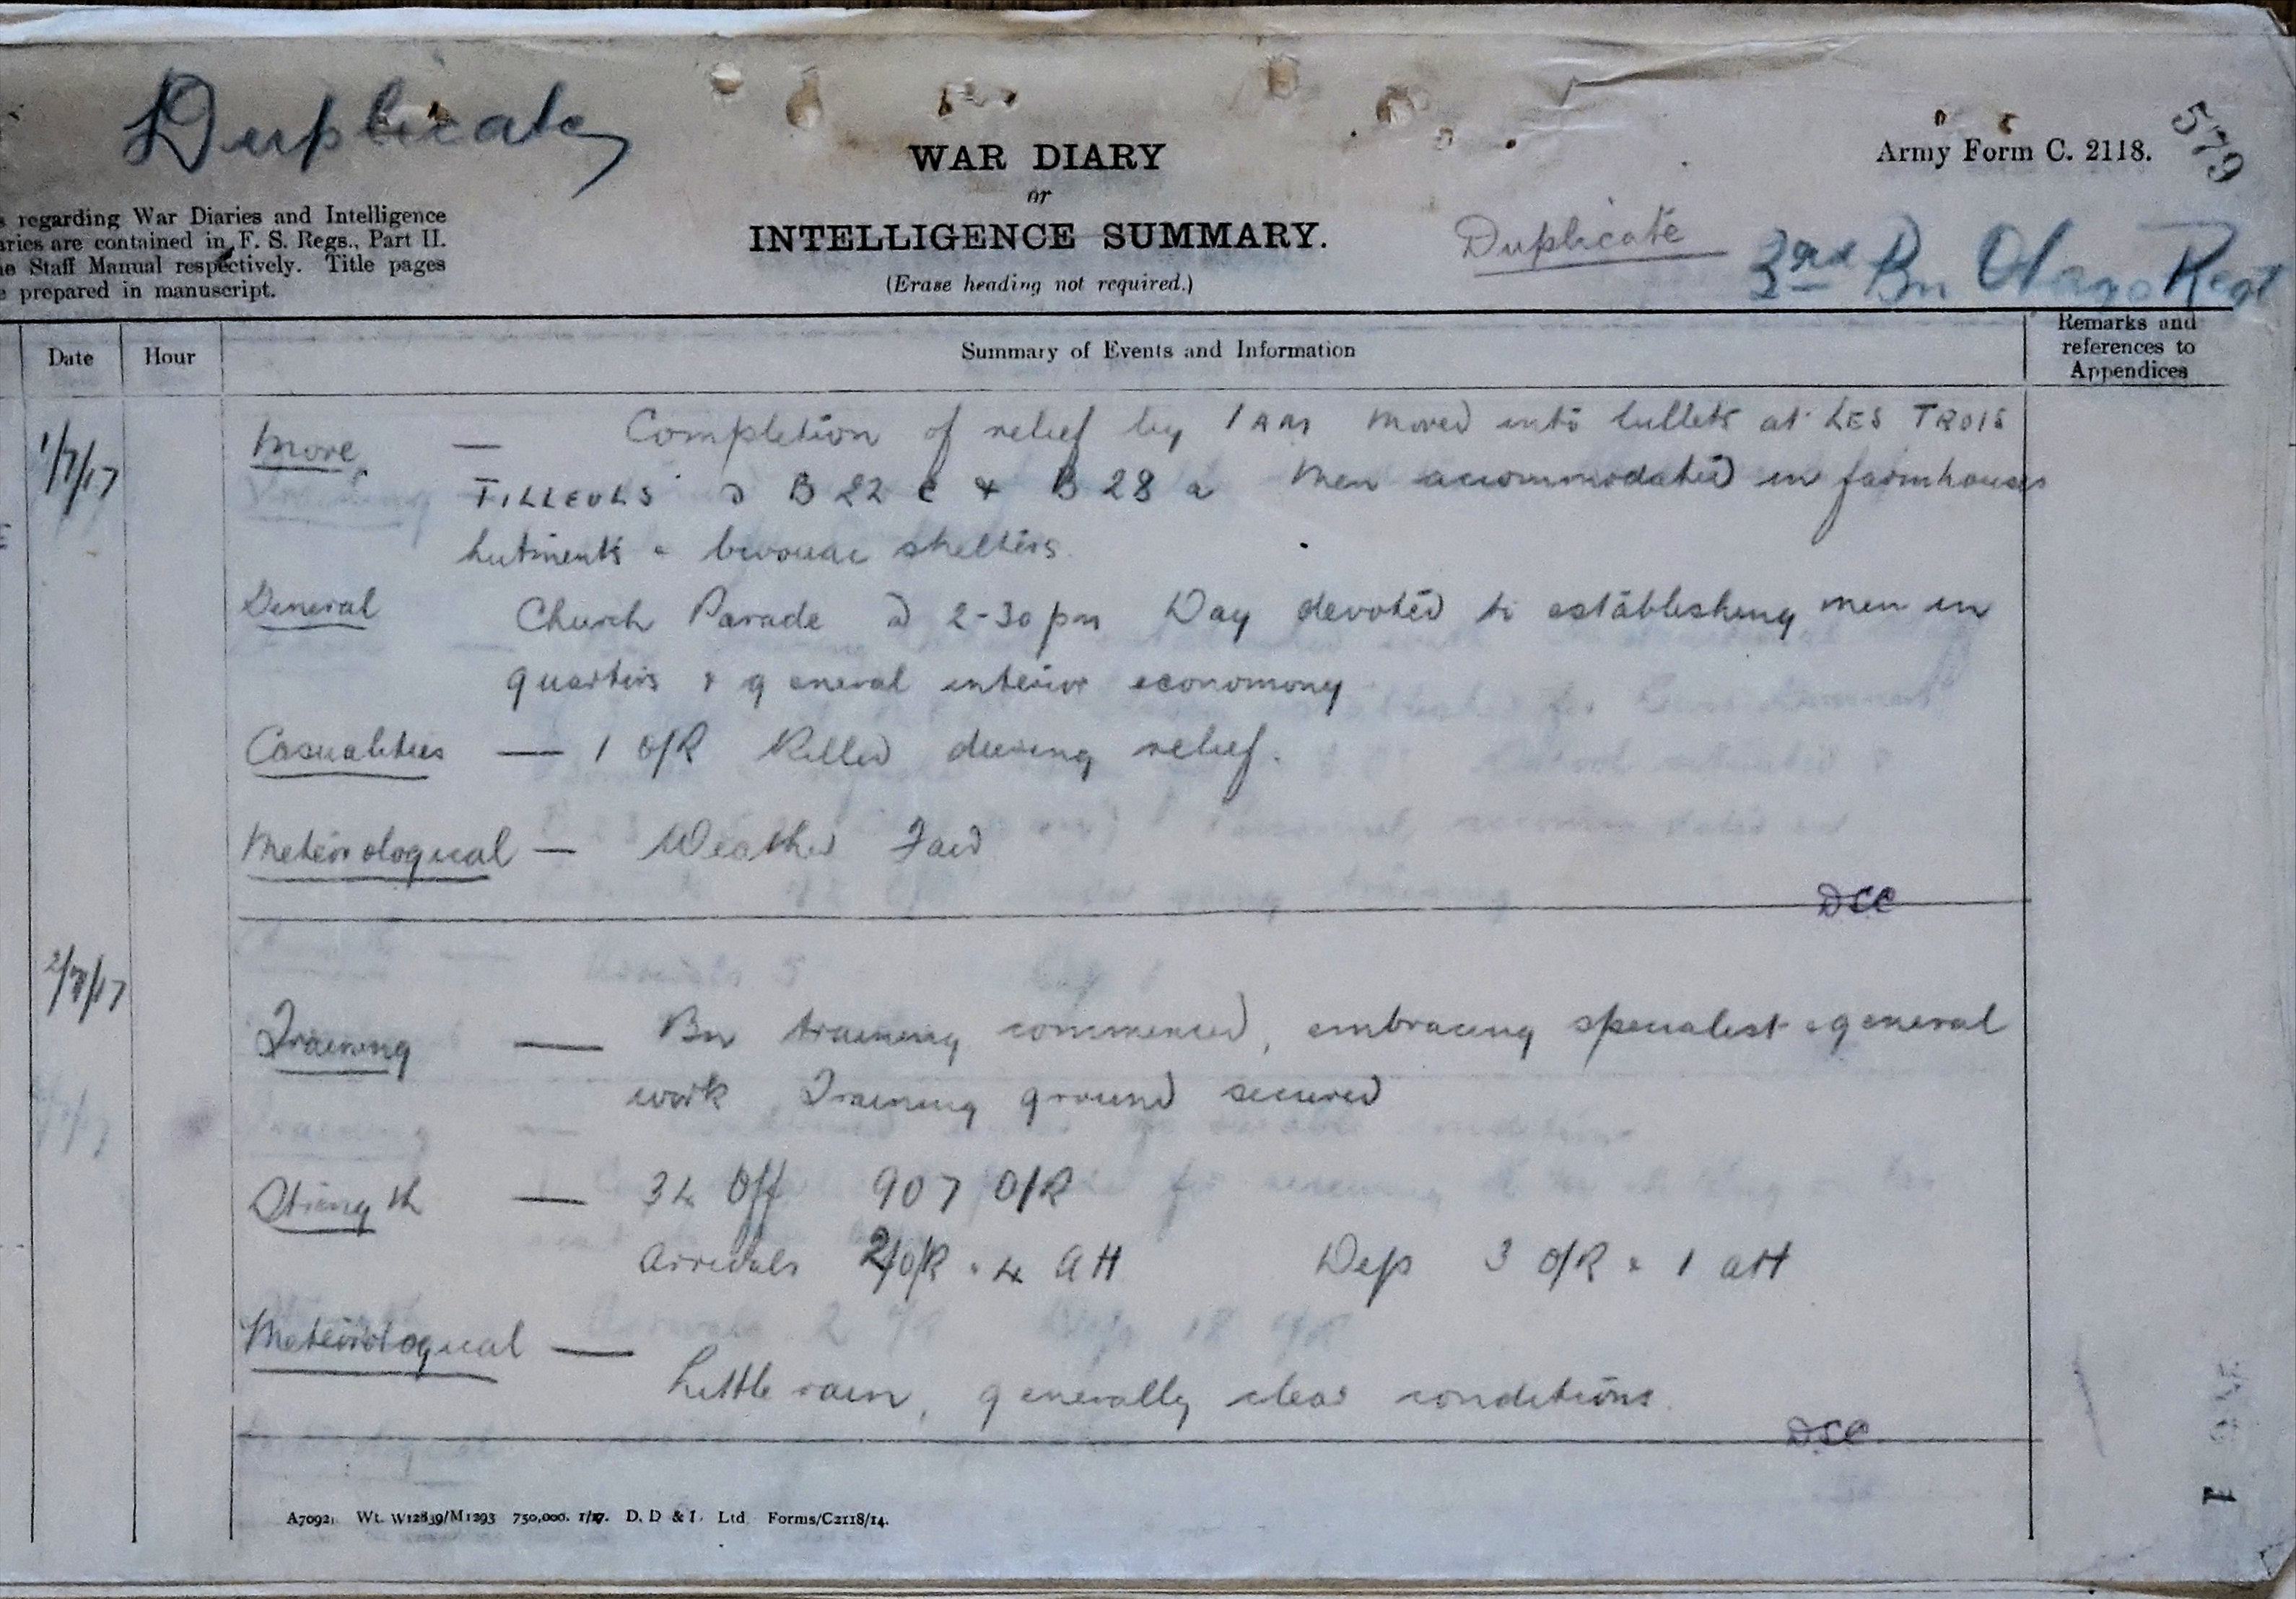 Duplicate
WAR DIARY
or
INTELLIGENCE SUMMARY.
(Erase heading not required.)
Army Form C. 2118.
579
Duplicate
3rd Bn Otago Regt
s regarding War Diaries and Intelligence
aries are contained in F. S. Regs., Part II.
ne Staff Manual respectively. Title pages
e prepared in manuscript.
Date Hour Summary of Events and Information Remarks and references to Appendices
1/7/17 Move, — Completion of relief by 1 AM moved into billets at LES TROIS
TILLEULS B 22 c & B 28 a Men accommodated in farmhouses
hutments & bivouac shelters.
General Church Parade @ 2-30 pm Day devoted to establishing men in
quarters & general interior economony
Casualties — 1 O/R Killed during relief.
Meteorological — Weather Fair
DCC
2/7/17
Training — Bn training commenced, embracing specialist & general
work Training ground secured
Strength — 34 Off 907 O/R
Arrivals 2 O/R & 4 att Dep 3 O/R & 1 att
Meteorological —
Little rain, generally clear conditions.
DCC
A7092. Wt. W12839/M1293 750,000. 1/17. D. D & L. Ltd Forms/C2118/14.